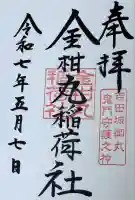 奉拝
吉田城本丸
鬼門守護之神
金柑丸稲荷社
令和七年五月七日